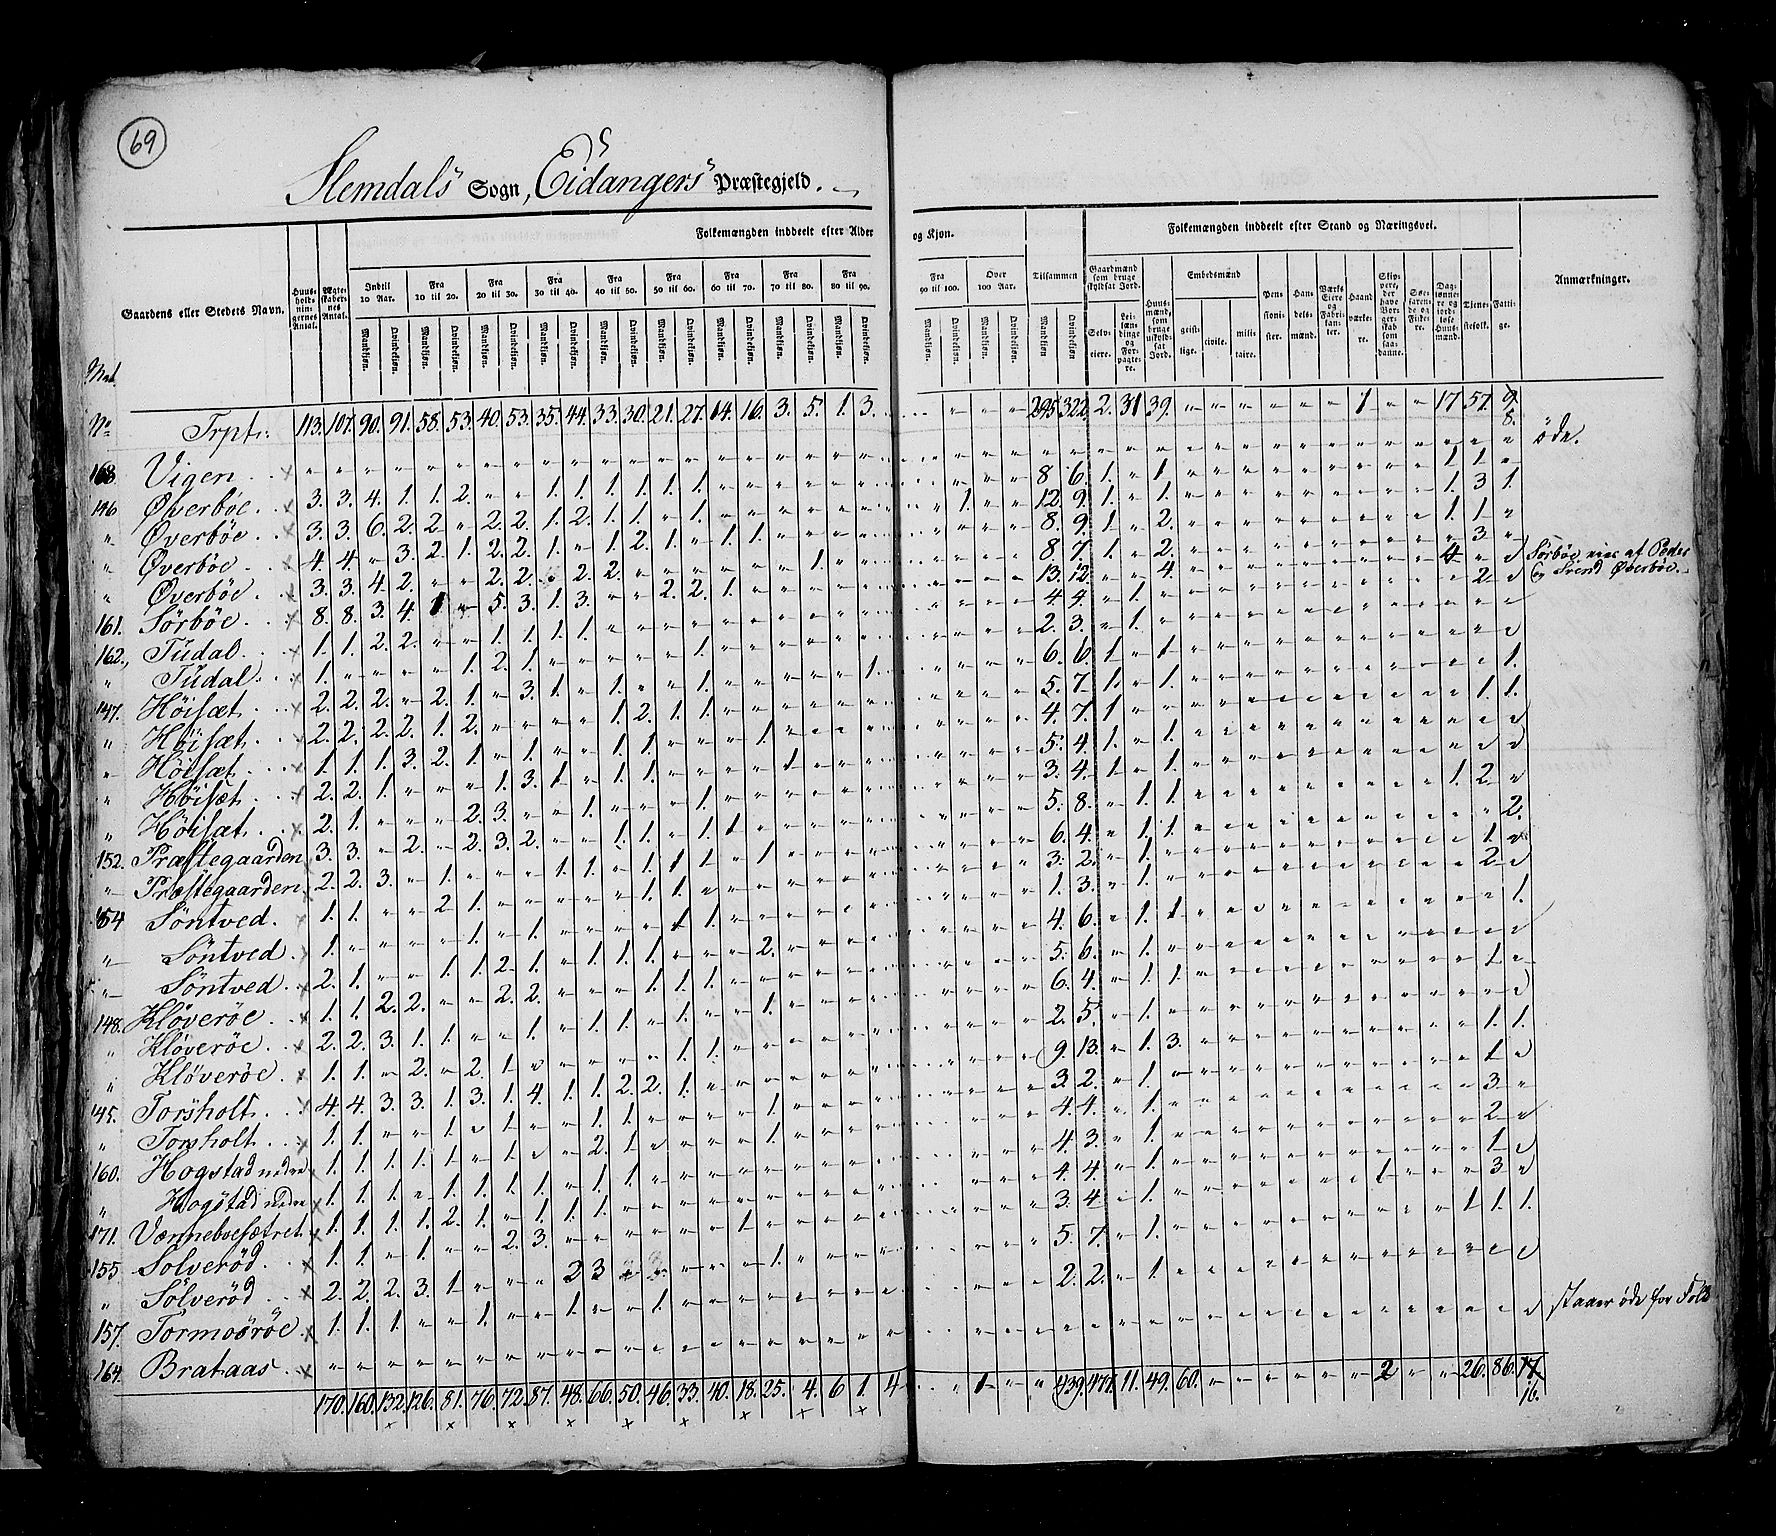 69
Slemdals Sogn, Eidangers Præstegjeld.
Folkemængden inddeelt efter Alder og Kjøn.
Folkemængden inddeelt efter Stand og Næringsvei.
Gaardens eller Stedets Navn.
Huusholdningernes Antal.
Ægteskabernes Antal.
Indtil 10 Aar.
Fra 10 til 20.
Fra 20 til 30.
Fra 30 til 40.
Fra 40 til 50.
Fra 50 til 60.
Fra 60 til 70.
Fra 70 til 80.
Fra 80 til 90.
Fra 90 til 100.
Over 100 Aar.
Tilsammen
Mandkjøn. Qvindekjøn.
Gaardmænd som bruge skyldsat Jord.
Selveiere.
Leilændinge og Forpagtere.
Huusmænd, som bruge uskyldsat Jord.
Embedsmænd
geistlige. civile. militaire.
Pensionister.
Handelsmænd.
Værks Eiere og Fabrikanter.
Haandværkere.
Skippere, der have Borgerskab som saadanne.
Søefarende og Fiskere.
Daglønnere og jordløse Huusmænd.
Tjenestefolk.
Fattige.
Anmærkninger.
No Trpt: 113. 107. 90. 91. 58. 53. 40. 53. 35. 44. 33. 30. 21. 27. 14. 16. 3. 5. 1. 3. 295 322 2. 31 39. 1 17 57. 9. 8.
168. Vigen øde.
146 Øverbøe 3. 3. 4. 1. 1. 2. 1. 1. 1. 1. 1. 1. 8 6. 1. 1. 1. 1.
" Øverbøe 3. 3. 6. 2. 2 " 2. 2. 1. 2. 1. 1. " 1. 1. 12 9. 1. 1. 1. 3 1.
" Øverbøe 4. 4. " 3. 2. 1. 2. 2. 1. " 1. 2. 1. " 1. 1. 8. 9. 1 2. 1. 1.
" Øverbøe 3. 3. 4 2. 2. 2. 2. 2. 1. 8 7. 1. 2. 3
161. Sörbôe 8. 8. 3. 4. 1. 5. 3. 1. 3. 2. 2. 1. 13. 12. 4. 4 Sörbôe eies af Peder og Svend Øverbøe.
162. Tudal 1. 1. 2. 2. 1. 1. 1. 1. 4. 4. 1. 2
" Tudal 1. 1. 2. 1. 1. 2. 3. 1.
147. Höisæt 2. 2. 2. 2. 1. 3. 1. 1. 1. 1. 6. 6. 1. 1.
" Höisæt 2. 2. 2. 2. 1. 2. 1. 2. 1. 1. 1. 5. 7. 1. 1. 1.
" Höisæt 1. 1. 1. 3. 2. 1. 1. 1. 1. 1 4. 7. 1 1. 1.
" Höisæt 2. 2. 1. 1. 3. 1 1. 1. 5. 4. 1. 1.
" Höisæt 2. 1. 2. 3. 1. 1. 3. 4. 1. 1.
152. Præstegaarden 3. 3. 2. 2. 3. 2. 1. 1. 1. 1 5. 8. 1. 1. 1. 2.
" Præstegaarden 2. 2. 3. 1. 1. 1. 1. 1 1. 1. 6. 4. 1. 1. 2.
154 Söntved. 1. 1. 2. 1. 1. 1. 3. 2. 1. 1.
" Söntved 1. 1. 1. 1 1. 1. 3. 1. 2.
" Söntved 2. 1. 1. 1. 2. 1. 1. 1. 1. 2. 4. 6. 1. 1 1.
148. Klöveröe 1. 1. 2. 2. 2. 2. 1. 1. 1. 5. 6. 1.
" Klöveröe 2. 2. 3. 1. 1. 1. 1. 1. 1. 1. 1. 6. 4. 1. 1. 1.
" Klöveröe 1. 1. 2. 2. 1 1. 1. 2. 5. 1.
145. Torsholt 4. 4. 3. 3. 1. 3. 1. 4. 1. 1. 2. 2. 1. 9. 13. 1. 3. 1. 1.
" Torsholt 1. 1. 1. 1. 1. 1. 1. 3. 2. 1. 1.
160. Hogstad nedre 1. 1. 1. 1. 1. 1. 2. 1. 1. 4. 4. 1. 3.
" Hogstad nedre 1. 1. 1. 1. 1. 1. 1. 1. 1. 4. 3. 1. 2.
171. Vønnebvesætret 1. 1. 1. 1. 2. 1. 1. 1. 1. 1. 4. 4. 1. 1.
155 Solveröd 1. 1. 1. 2. 3. 1. 3. 4. 1. 1. 3.
" Sölveröd 2. 2. 2. 3. 1. 2 3 1. 5. 7. 1. 1. 1. 1.
157. Tormoöröe 1. 1. 1. 1. 1. 1. 2. 2. 1.
164. Brataas staaer øde for Folk
170. 160. 132. 126. 81. 76. 72. 87. 48. 66. 50. 46. 33. 40. 18. 25. 4. 6 1. 4 1 439. 477. 11. 49. 60. 2 26. 86. 17. 16.